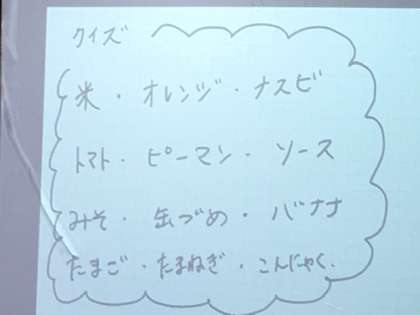 クイズ
米・オレンジ・ナスビ
トマト・ピーマン・ソース
みそ・缶づめ・バナナ
たまご・たまねぎ・こんにゃく.